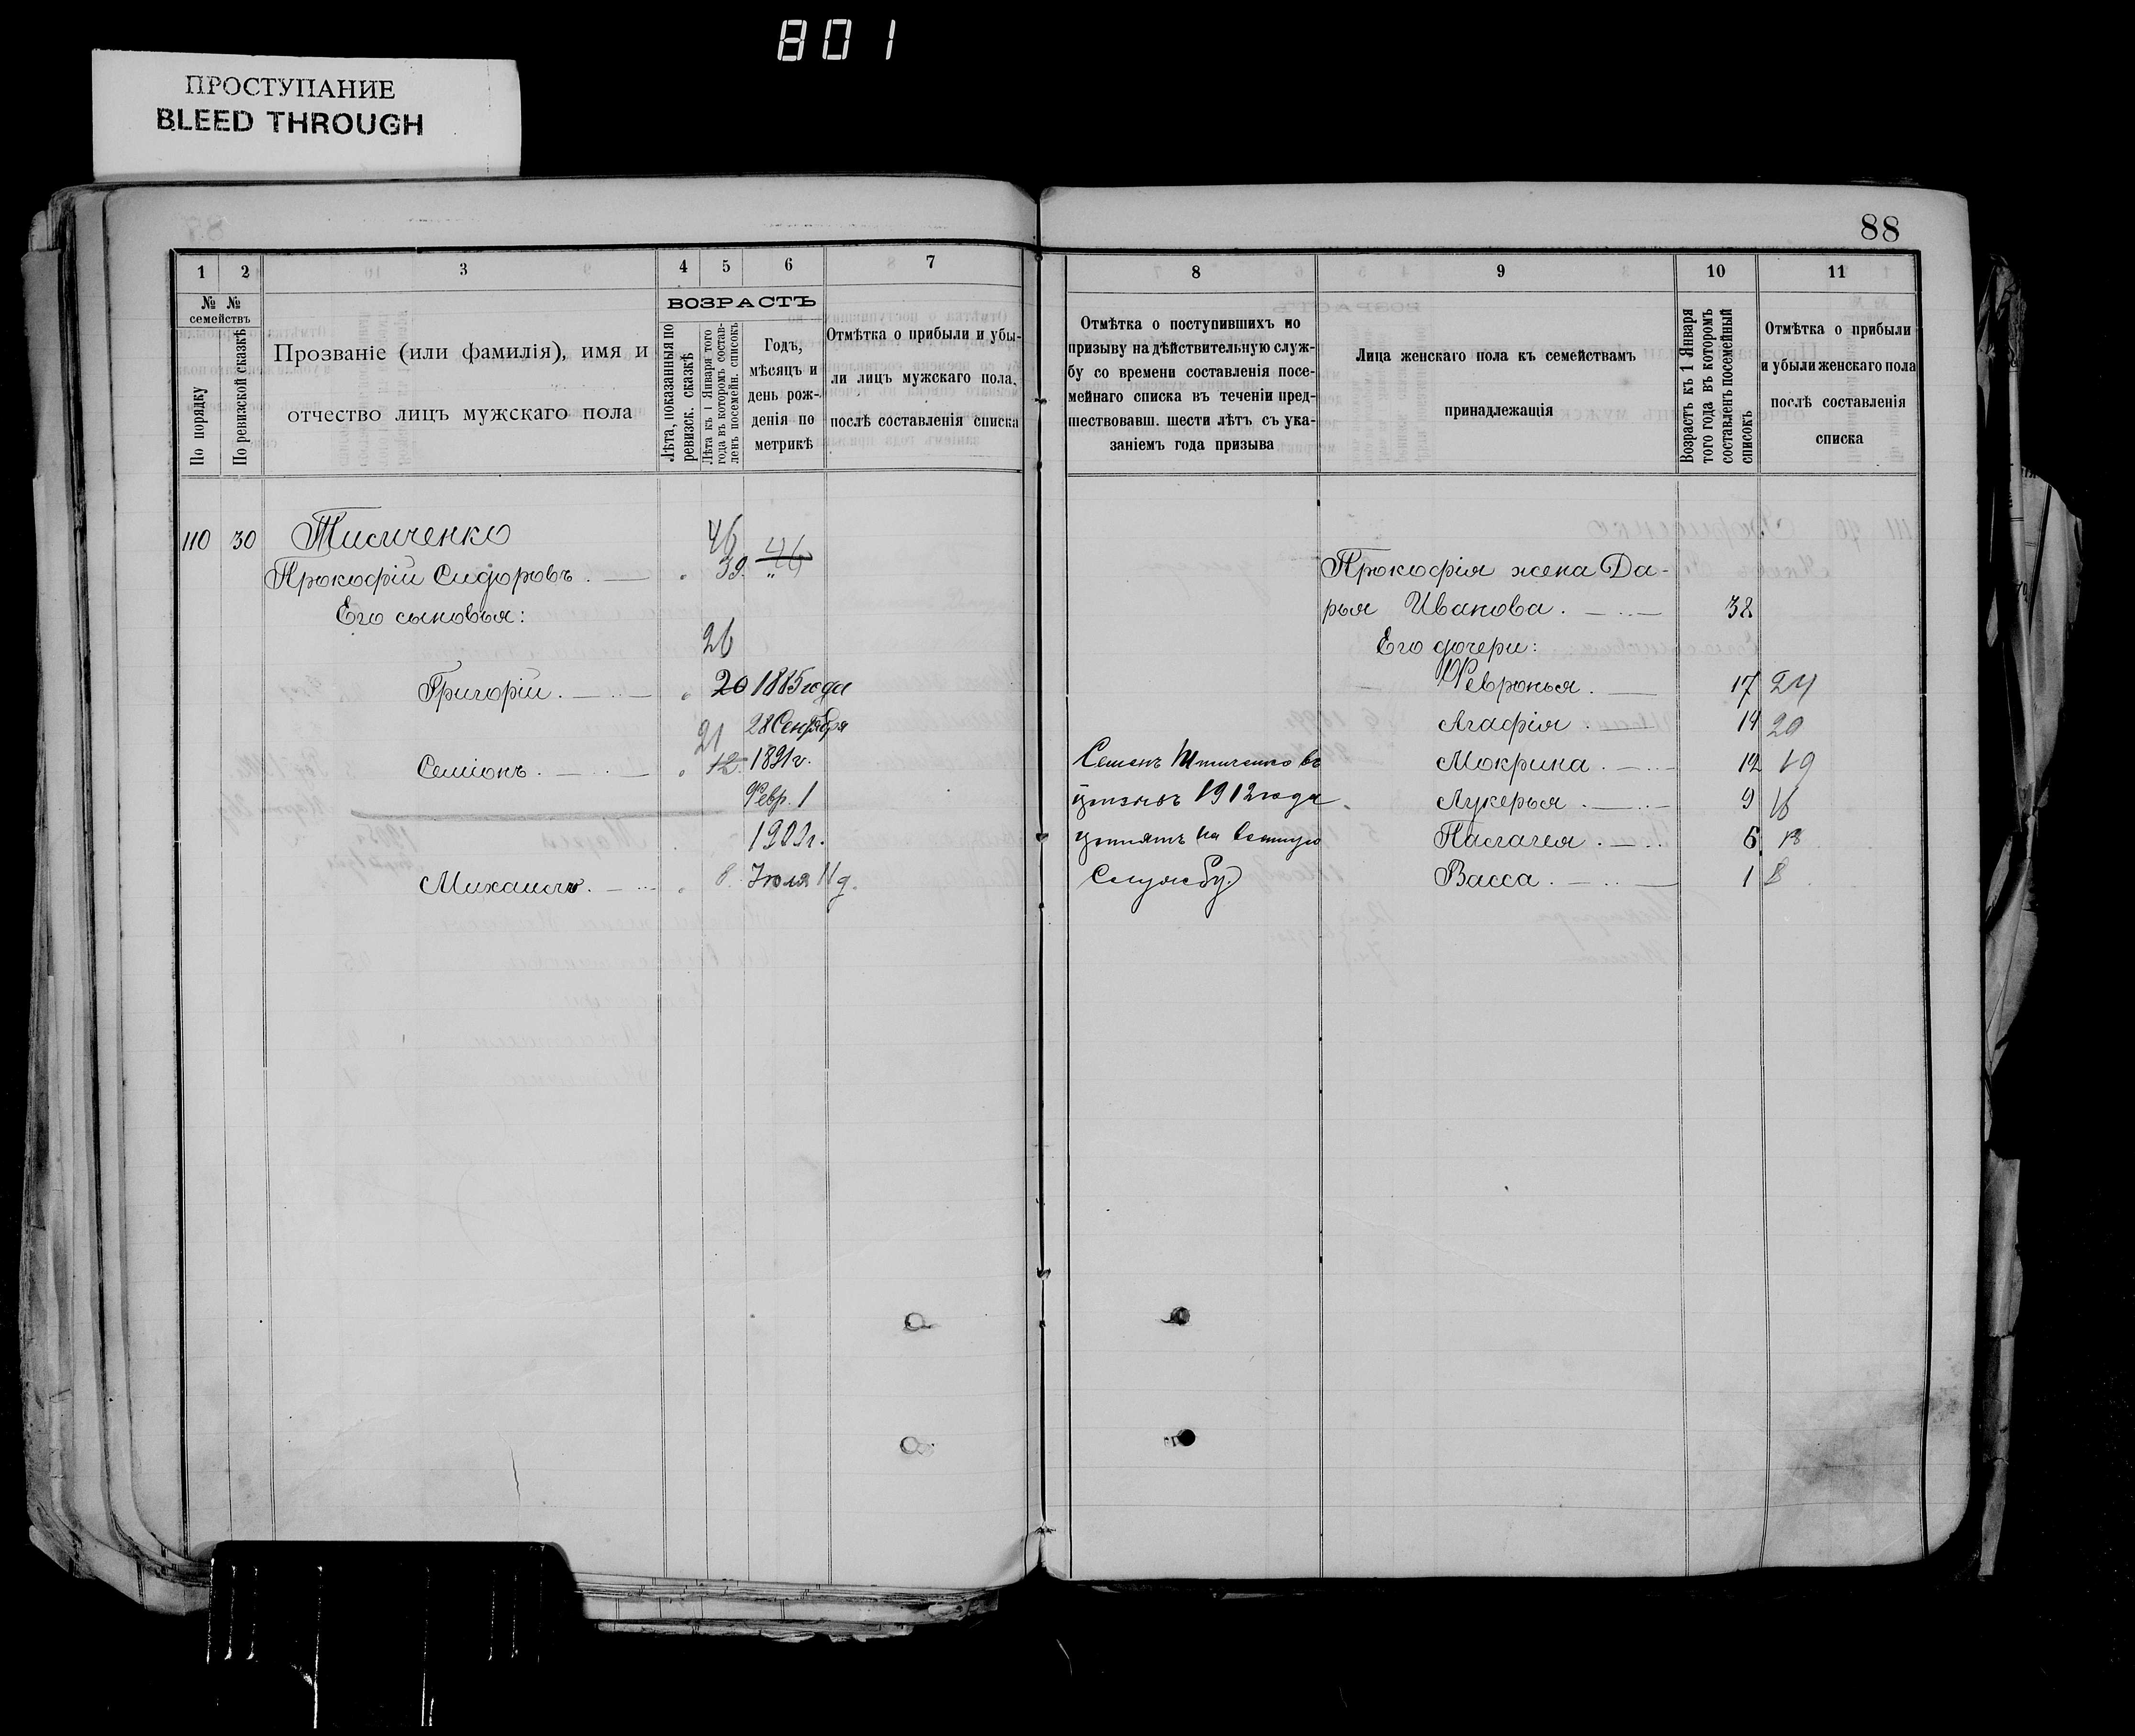 801
ПРОСТУПАНИЕ
BLEED THROUGH
88
1 2 3 4 5 6 7
№ № семействъ
По порядку
По ревизской сказкѣ
Прозваніе (или фамилія), имя и
отчество лицъ мужскаго пола
ВОЗРАСТЪ
Лѣта, показанныя по
ревизск. сказкѣ
Лѣта къ 1 Января того
года въ которомъ состав-
ленъ посемейн. списокъ
Годъ,
мѣсяцъ и
день рож-
денія по
метрикѣ
Отмѣтка о прибыли и убы-
ли лицъ мужскаго пола,
послѣ составленія списка
110 30
46 46
Прокофій Сидоровъ. 39. „
Его сыновья:
26
Григорій. „ 20 1885 года
28 Сентября
21
Семіонъ. „ 12. 1891 г.
Февр. 1
Михаилъ. „ Іюля 11 д.
8 9 10 11
Отмѣтка о поступившихъ по
призыву на дѣйствительную служ-
бу со времени составленія посе-
мейнаго списка въ теченіи пред-
шествовавш. шести лѣтъ съ ука-
заніемъ года призыва
Лица женскаго пола къ семействамъ
принадлежащія
Возрастъ къ 1 Января
того года въ которомъ
составленъ посемейный
списокъ
Отмѣтка о прибыли
и убыли женскаго пола
послѣ составленія
списка
Прокофія жена Да-
рья Иванова. 38
Его дочери:
Февронья. 17 24
Агафія. 14 20
Мокрина. 12 19
Лукерья. 9 16
Пелагея. 6 13
Васса. 1 8
Семенъ въ
призывъ 1912 года
принятъ на военную
службу.